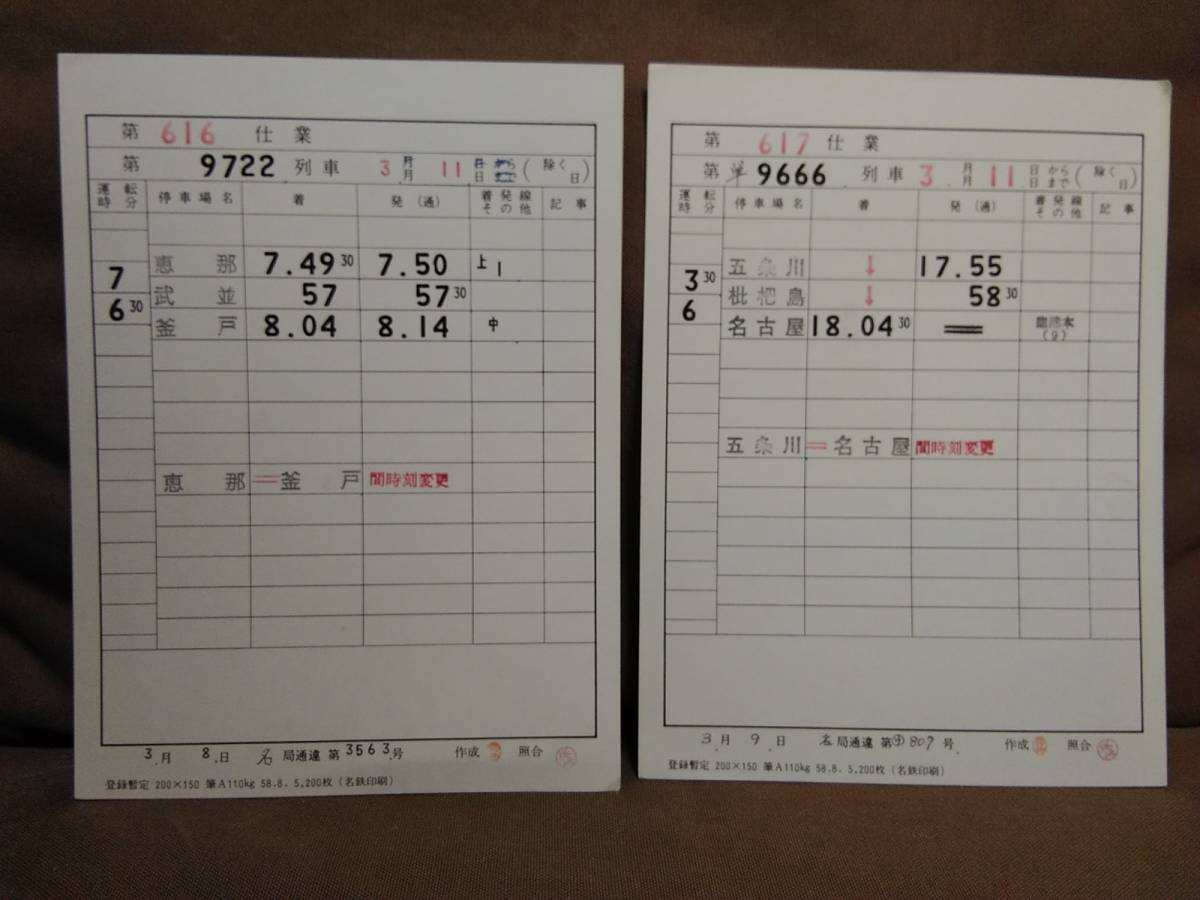 第 616 仕業
第 9722 列車 3月 11日から まで (除く 日)
運転時分 停車場名 着 発(通) 着発線その他 記事
恵那 7.49 30 7.50 上1
7
武並 57 57 30
6 30
釜戸 8.04 8.14 中
恵那=釜戸 間時刻変更
3月 8日 名局通違 第3563号 作成 照合
登録暫定 200×150 筆A110kg 58.8. 5,200枚 (名鉄印刷)
第 617 仕業
第 9666 列車 3月 11日から 日まで (除く 日)
運転時分 停車場名 着 発(通) 着発線その他 記事
五条川 ↓ 17.55
3 30
枇杷島 ↓ 58 30
6
名古屋 18.04 30 =
(9)
五条川=名古屋 間時刻変更
3月 9日 名局通違 第 807号 作成 照合
登録暫定 200×150 筆A110kg 58.8. 5,200枚 (名鉄印刷)